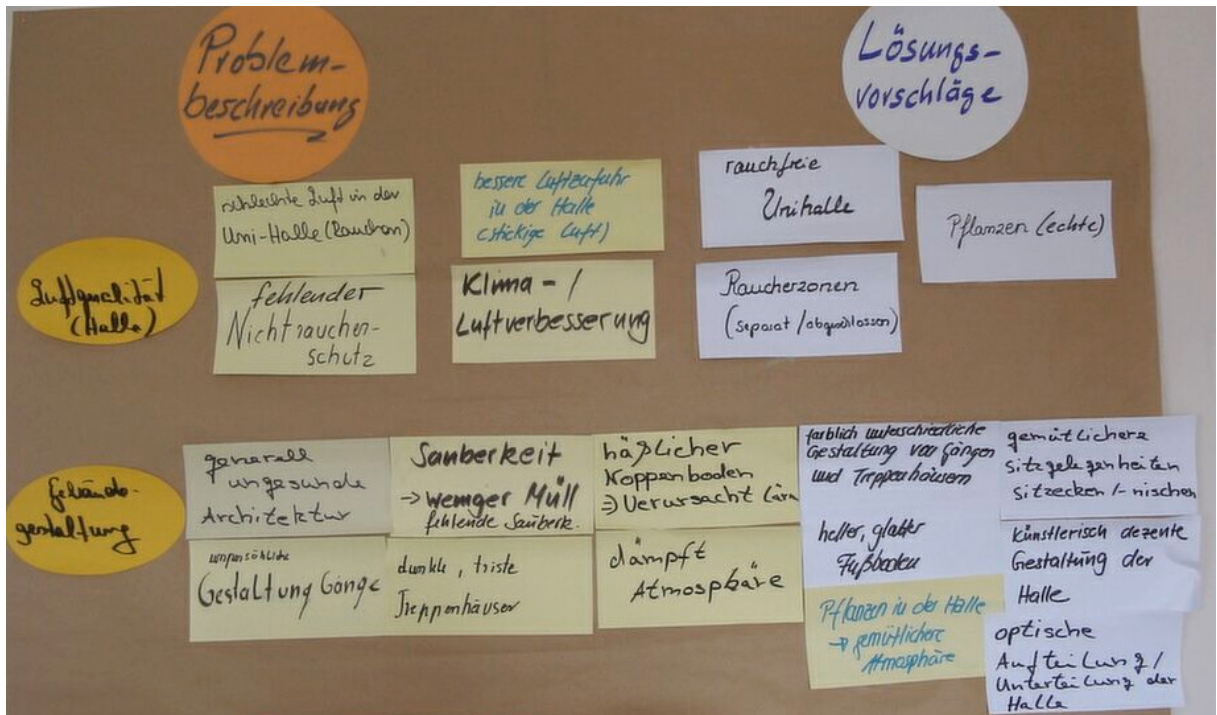 Problem-
beschreibung
Lösungs-
vorschläge
Luftqualität
(Halle)
schlechte Luft in der
Uni-Halle (Rauchen)
fehlender
Nichtraucher-
schutz
bessere Luftzufuhr
in der Halle
(stickige Luft)
Klima- /
Luftverbesserung
rauchfreie
Unihalle
Raucherzonen
(separat / abgeschlossen)
Pflanzen (echte)
Gebäude-
gestaltung
generell
ungesunde
Architektur
unpersönliche
Gestaltung Gänge
Sauberkeit
→ weniger Müll
fehlende Sauberk.
dunkle, triste
Treppenhäuser
häßlicher
Noppenboden
⇒ Verursacht Lärm
dämpft
Atmosphäre
farblich unterschiedliche
Gestaltung von Gängen
und Treppenhäusern
heller, glatter
Fußboden
Pflanzen in der Halle
→ gemütlichere
Atmosphäre
gemütlichere
sitzgelegenheiten
sitzecken /- nischen
künstlerisch dezente
Gestaltung der
Halle
optische
Aufteilung /
Unterteilung der
Halle